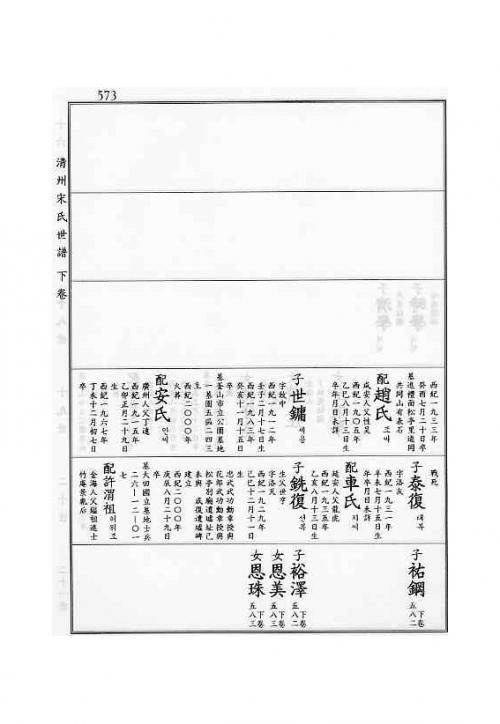 573
清州宋氏世譜 下卷
西紀一九三三年
癸酉七月二十日卒
墓進禮面松亭里道岡
共同山有表石
配趙氏 조씨
咸安人父性昊
西紀一九○五年
乙巳八月十三日生
卒年月日未詳
子世鏞 세용
字敬中
西紀一九一二年
壬子二月十七日生
西紀一九八三年
癸亥十一月十五日
卒
墓釜山市立公園墓地
一墓園五區二四三
生
西紀二○○○年
火葬
配安氏 안씨
廣州人父丁遠
西紀一九一五年
乙卯正月二十九日
生
西紀一九六七年
丁未十二月初七日
卒
戰死
子泰復 태복
字洛友
西紀一九三一年
辛未七月十五日生
卒年月日未詳
配車氏 차씨
延安人父龍虎
西紀一九三五年
乙亥八月十三日生
子銑復 선복
生父世亨
字洛天
西紀一九二九年
己巳十二月十一日
忠武武功勳章授與
花郎武功勳章授與
松亭別廟遺墟址己
未與 咸復遺墟碑
建立
西紀二○○○年
庚辰八月二十九日
卒
墓大田國立墓地士兵
二六ㅡ一二ㅡ○一
七
配許渭祖 허위조
金海人父緼祖進士
竹庵景胤后
子祐鋼 下卷 五八二
子裕澤 下卷 五八二
女恩美 下卷 五八三
女恩珠 下卷 五八三